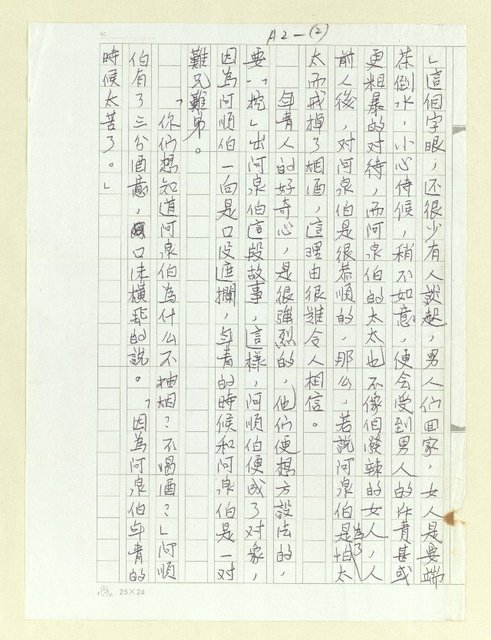 A2—(2)
」這個字眼，还很少有人談起，男人们回家，女人是要端
茶倒水，小心侍候，稍不如意，便会受到男人的斥責甚或
更粗暴的对待，而阿泉伯的太太也不像個潑辣的女人，人
前人後，对阿泉伯是很恭順的，那么，若說阿泉伯是为了怕太
太而戒掉了烟酒，這理由很難令人相信。
年青人的好奇心，是很強烈的，他们便想方設法的，
要「挖」出阿泉伯這段故事，這樣，阿順伯便成了对象，
因為阿順伯一向是口没遮攔，年青的時候和阿泉伯是一对
難兄難弟。
「你们想知道阿泉伯為什么不抽烟？不喝酒？」阿順
伯有了三分酒意，口沫橫飛的說。「因為阿泉伯年青的
時候太苦了。」
25×24